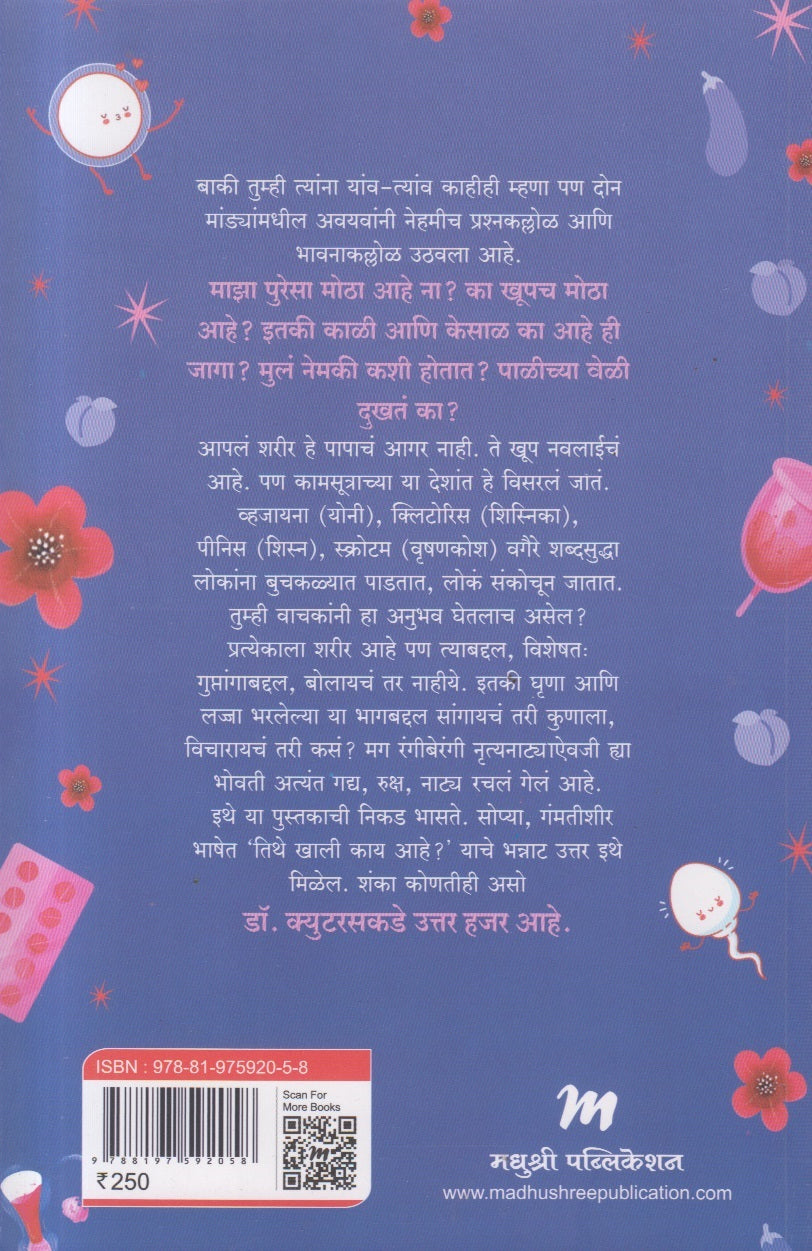 बाकी तुम्ही त्यांना यांव-त्यांव काहीही म्हणा पण दोन
मांड्यांमधील अवयवांनी नेहमीच प्रश्नकल्लोळ आणि
भावनाकल्लोळ उठवला आहे.
माझा पुरेसा मोठा आहे ना? का खूपच मोठा
आहे? इतकी काळी आणि केसाळ का आहे ही
जागा? मुलं नेमकी कशी होतात? पाळीच्या वेळी
दुखतं का?
आपलं शरीर हे पापाचं आगर नाही. ते खूप नवलाईचं
आहे. पण कामसूत्राच्या या देशांत हे विसरलं जातं.
व्हजायना (योनी), क्लिटोरिस (शिस्निका),
पीनिस (शिस्न), स्क्रोटम (वृषणकोश) वगैरे शब्दसुद्धा
लोकांना बुचकळ्यात पाडतात, लोकं संकोचून जातात.
तुम्ही वाचकांनी हा अनुभव घेतलाच असेल?
प्रत्येकाला शरीर आहे पण त्याबद्दल, विशेषतः
गुप्तांगाबद्दल, बोलायचं तर नाहीये. इतकी घृणा आणि
लज्जा भरलेल्या या भागबद्दल सांगायचं तरी कुणाला,
विचारायचं तरी कसं? मग रंगीबेरंगी नृत्यनाट्याऐवजी ह्या
भोवती अत्यंत गद्य, रुक्ष, नाट्य रचलं गेलं आहे.
इथे या पुस्तकाची निकड भासते. सोप्या, गंमतीशीर
भाषेत ‘तिथे खाली काय आहे?’ याचे भन्नाट उत्तर इथे
मिळेल. शंका कोणतीही असो
डॉ. क्युटरसकडे उत्तर हजर आहे.
ISBN : 978-81-975920-5-8
Scan For
More Books
9 788197 592058
₹250
m
मधुश्री पब्लिकेशन
www.madhushreepublication.com